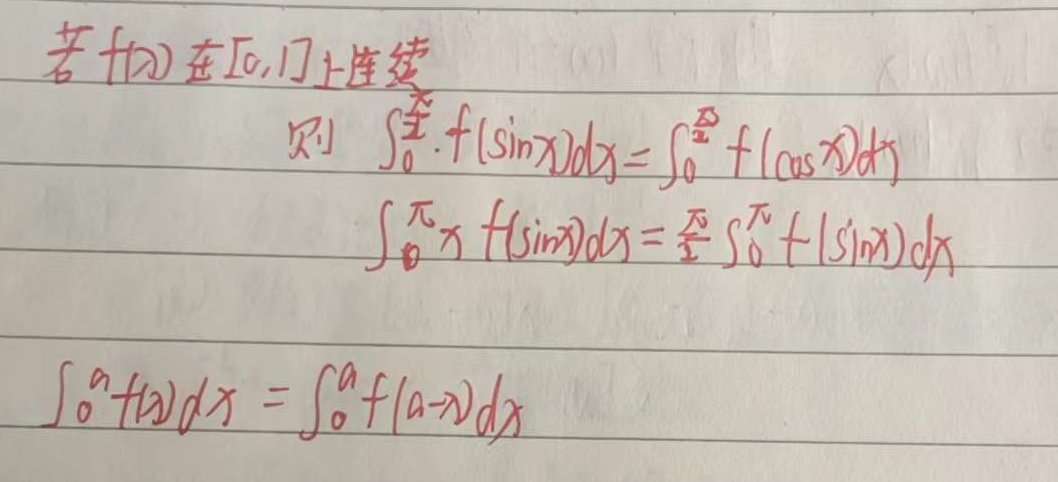 若 f(x) 在 [0,1] 上连续
则 ∫₀^{π/2} f(sinx)dx = ∫₀^{π/2} f(cosx)dx
∫₀^π x f(sinx)dx = π/2 ∫₀^π f(sinx)dx
∫₀^a f(x)dx = ∫₀^a f(a-x)dx